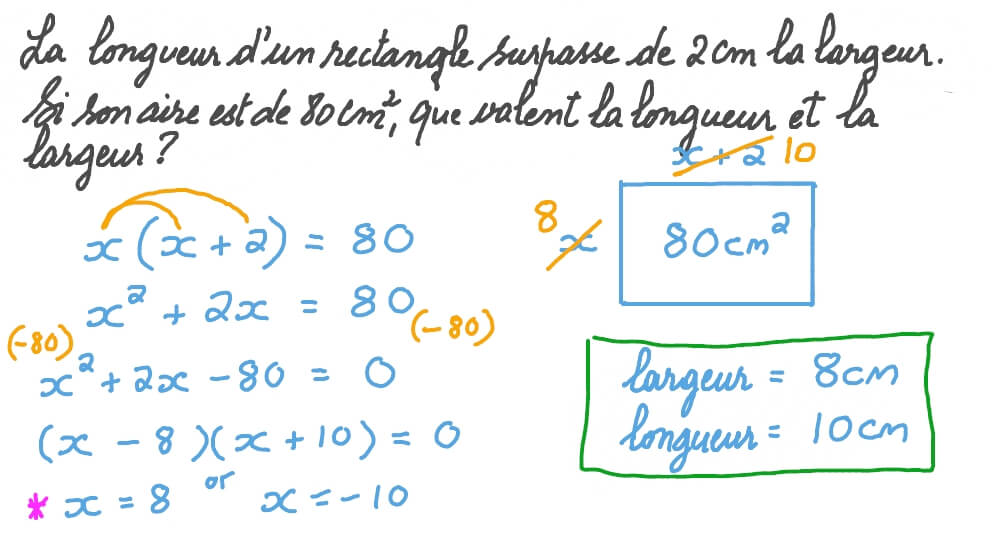 La longueur d'un rectangle surpasse de 2cm la largeur.
Si son aire est de 80cm², que valent la longueur et la
largeur ?
x + 2 10
8 x
80cm²
x (x + 2) = 80
x² + 2x = 80
(-80) (-80)
x² + 2x - 80 = 0
(x - 8)(x + 10) = 0
* x = 8 or x = -10
largeur = 8cm
longueur = 10cm